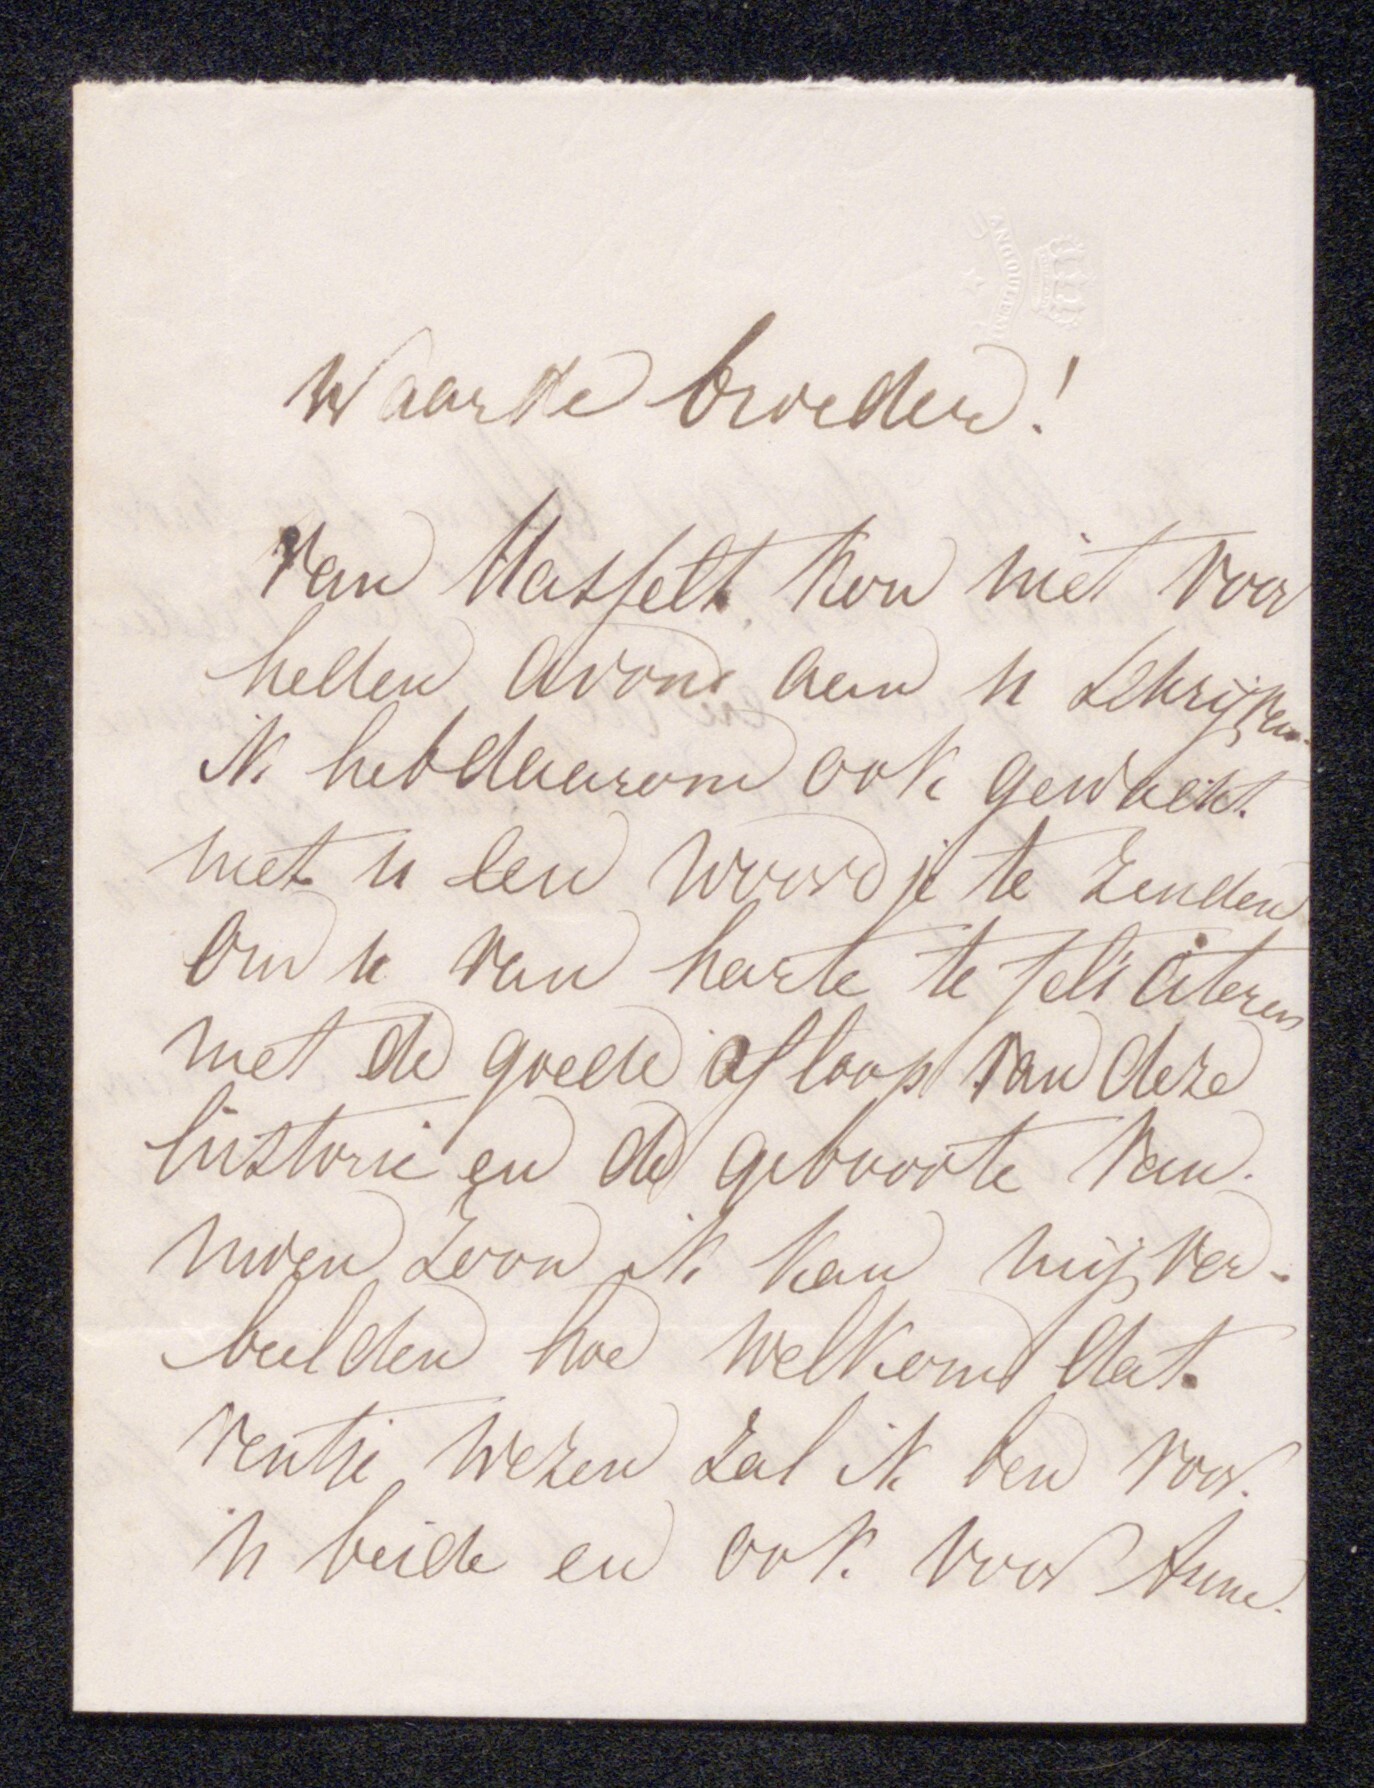 Waarde broeder!
van Hasselt kon niet voor
heden avond aan u schrijven.
ik heb daarom ook gewacht
met u een woordje te zenden
om u van harte te feliciteren
met de goede afloop van deze
historie en de geboorte van
uwen zoon ik kan mij ver-
beelden hoe welkom dat
ventje wezen zal ik ben voor
u beide en ook voor